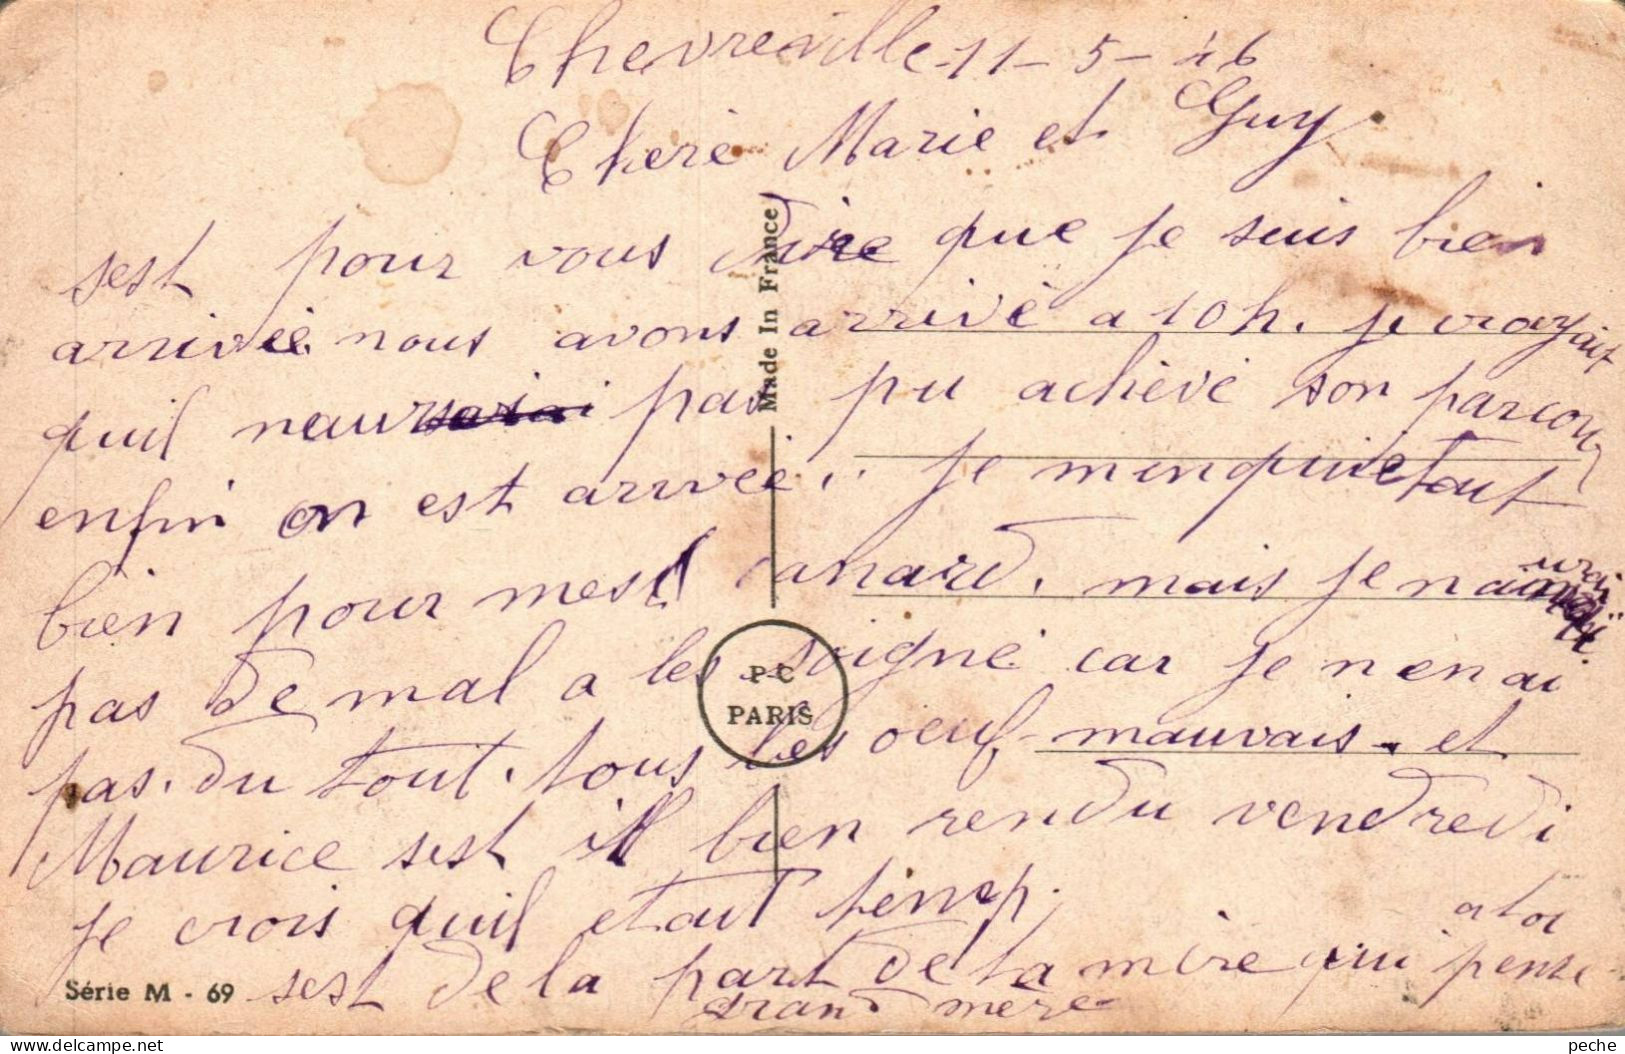 Chevreville 11-5-46
Cheré Marie et Guy
sest pour vous dire que je suis bien
arrivée. nous avons arrivé a 10h. je croyait
quil naur pas pu achevé son parcour
enfin on est arivée. je minquietout
bien pour mes canard. mais je nai
urai
pas de mal a les soigné car je n en ai
pas. du tout. tous les oeuf mauvais. et
Maurice sest il bien rendu vendredi
je crois quil etait temp.
a toi
sest de la part de ta mère qui pense
grand mère
Made In France
P-C
PARIS
Série M - 69
peche